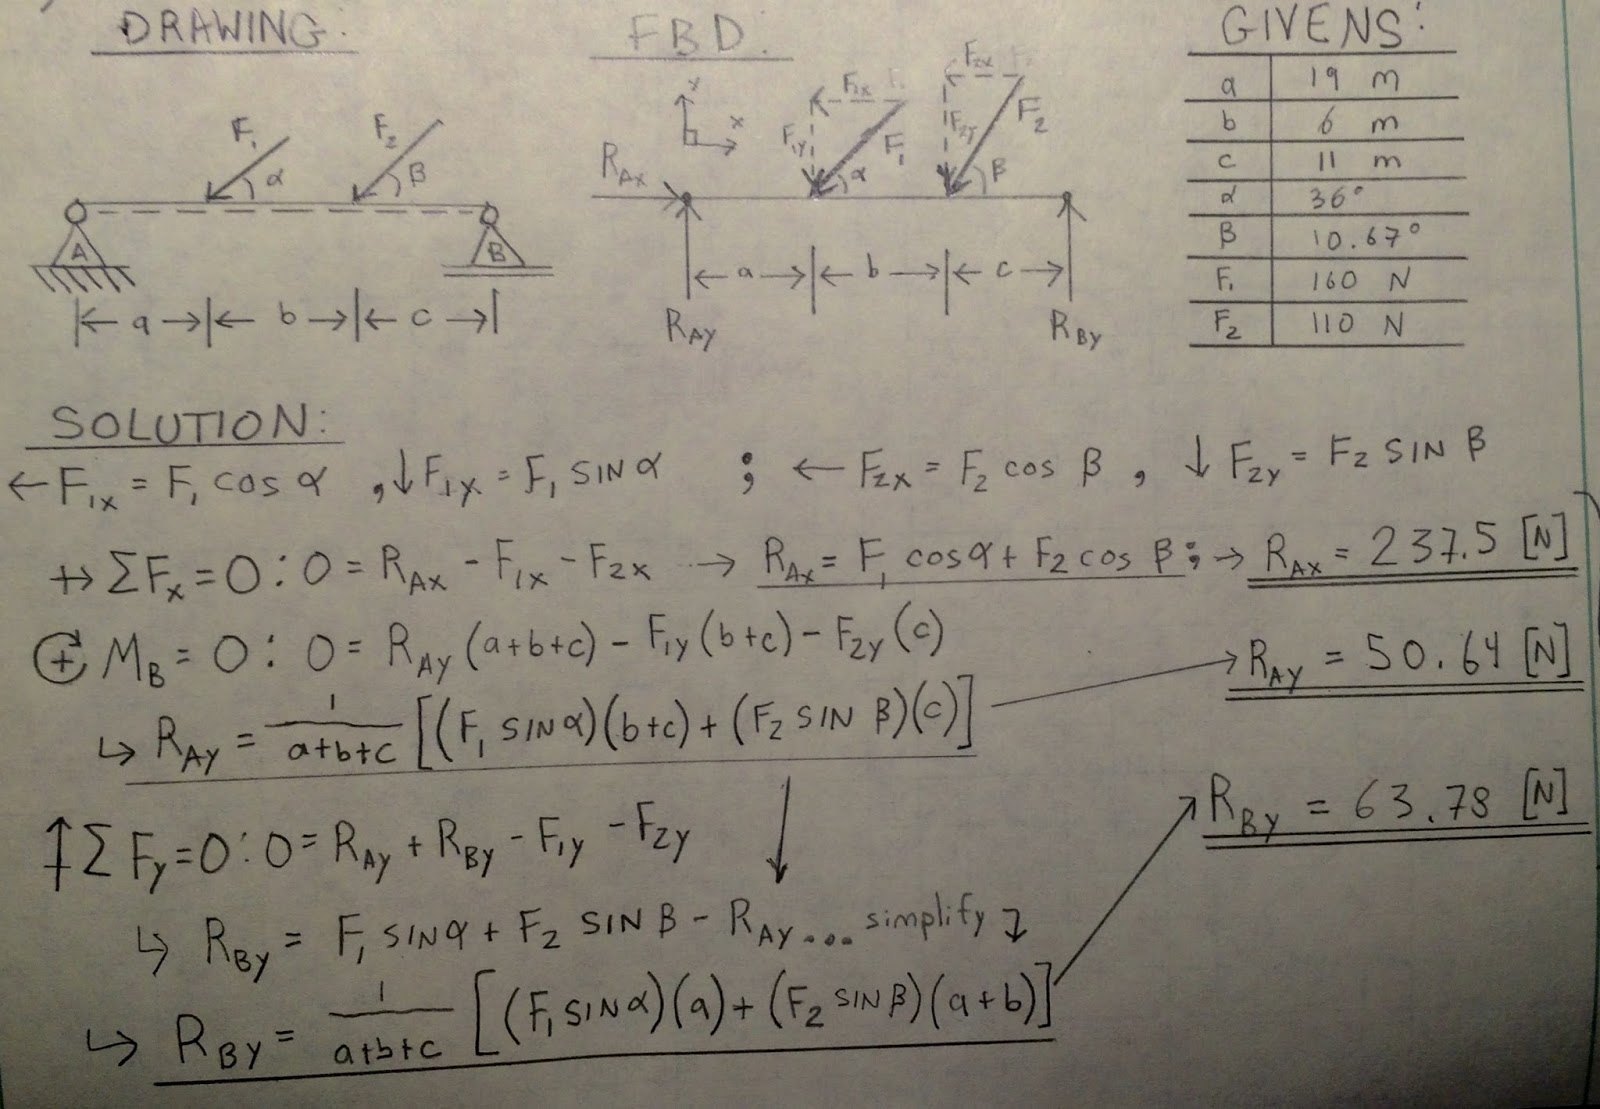 DRAWING:
F₁ α F₂ β
A B
a b c
FBD:
y x
F₁x F₁y F₁ α
F₂x F₂y F₂ β
RAx
a b c
RAY RBY
GIVENS:
a 19 m
b 6 m
c 11 m
α 36°
β 10.67°
F₁ 160 N
F₂ 110 N
SOLUTION:
← F₁x = F₁ cos α , ↓ F₁y = F₁ SIN α ; ← F₂x = F₂ cos β , ↓ F₂y = F₂ SIN β
+→ ΣFx = 0 : 0 = RAx - F₁x - F₂x → RAx = F₁ cos α + F₂ cos β ; → RAx = 237.5 [N]
+ MB = 0 : 0 = RAY (a+b+c) - F₁y (b+c) - F₂y (c)
→ RAY = 50.64 [N]
↳ RAY = 1/(a+b+c) [(F₁ SIN α)(b+c) + (F₂ SIN β)(c)]
↑ Σ Fy = 0 : 0 = RAY + RBY - F₁y - F₂y
↳ RBY = F₁ SIN α + F₂ SIN β - RAY ... simplify ↴
↳ RBY = 1/(a+b+c) [(F₁ SIN α)(a) + (F₂ SIN β)(a+b)]
RBY = 63.78 [N]